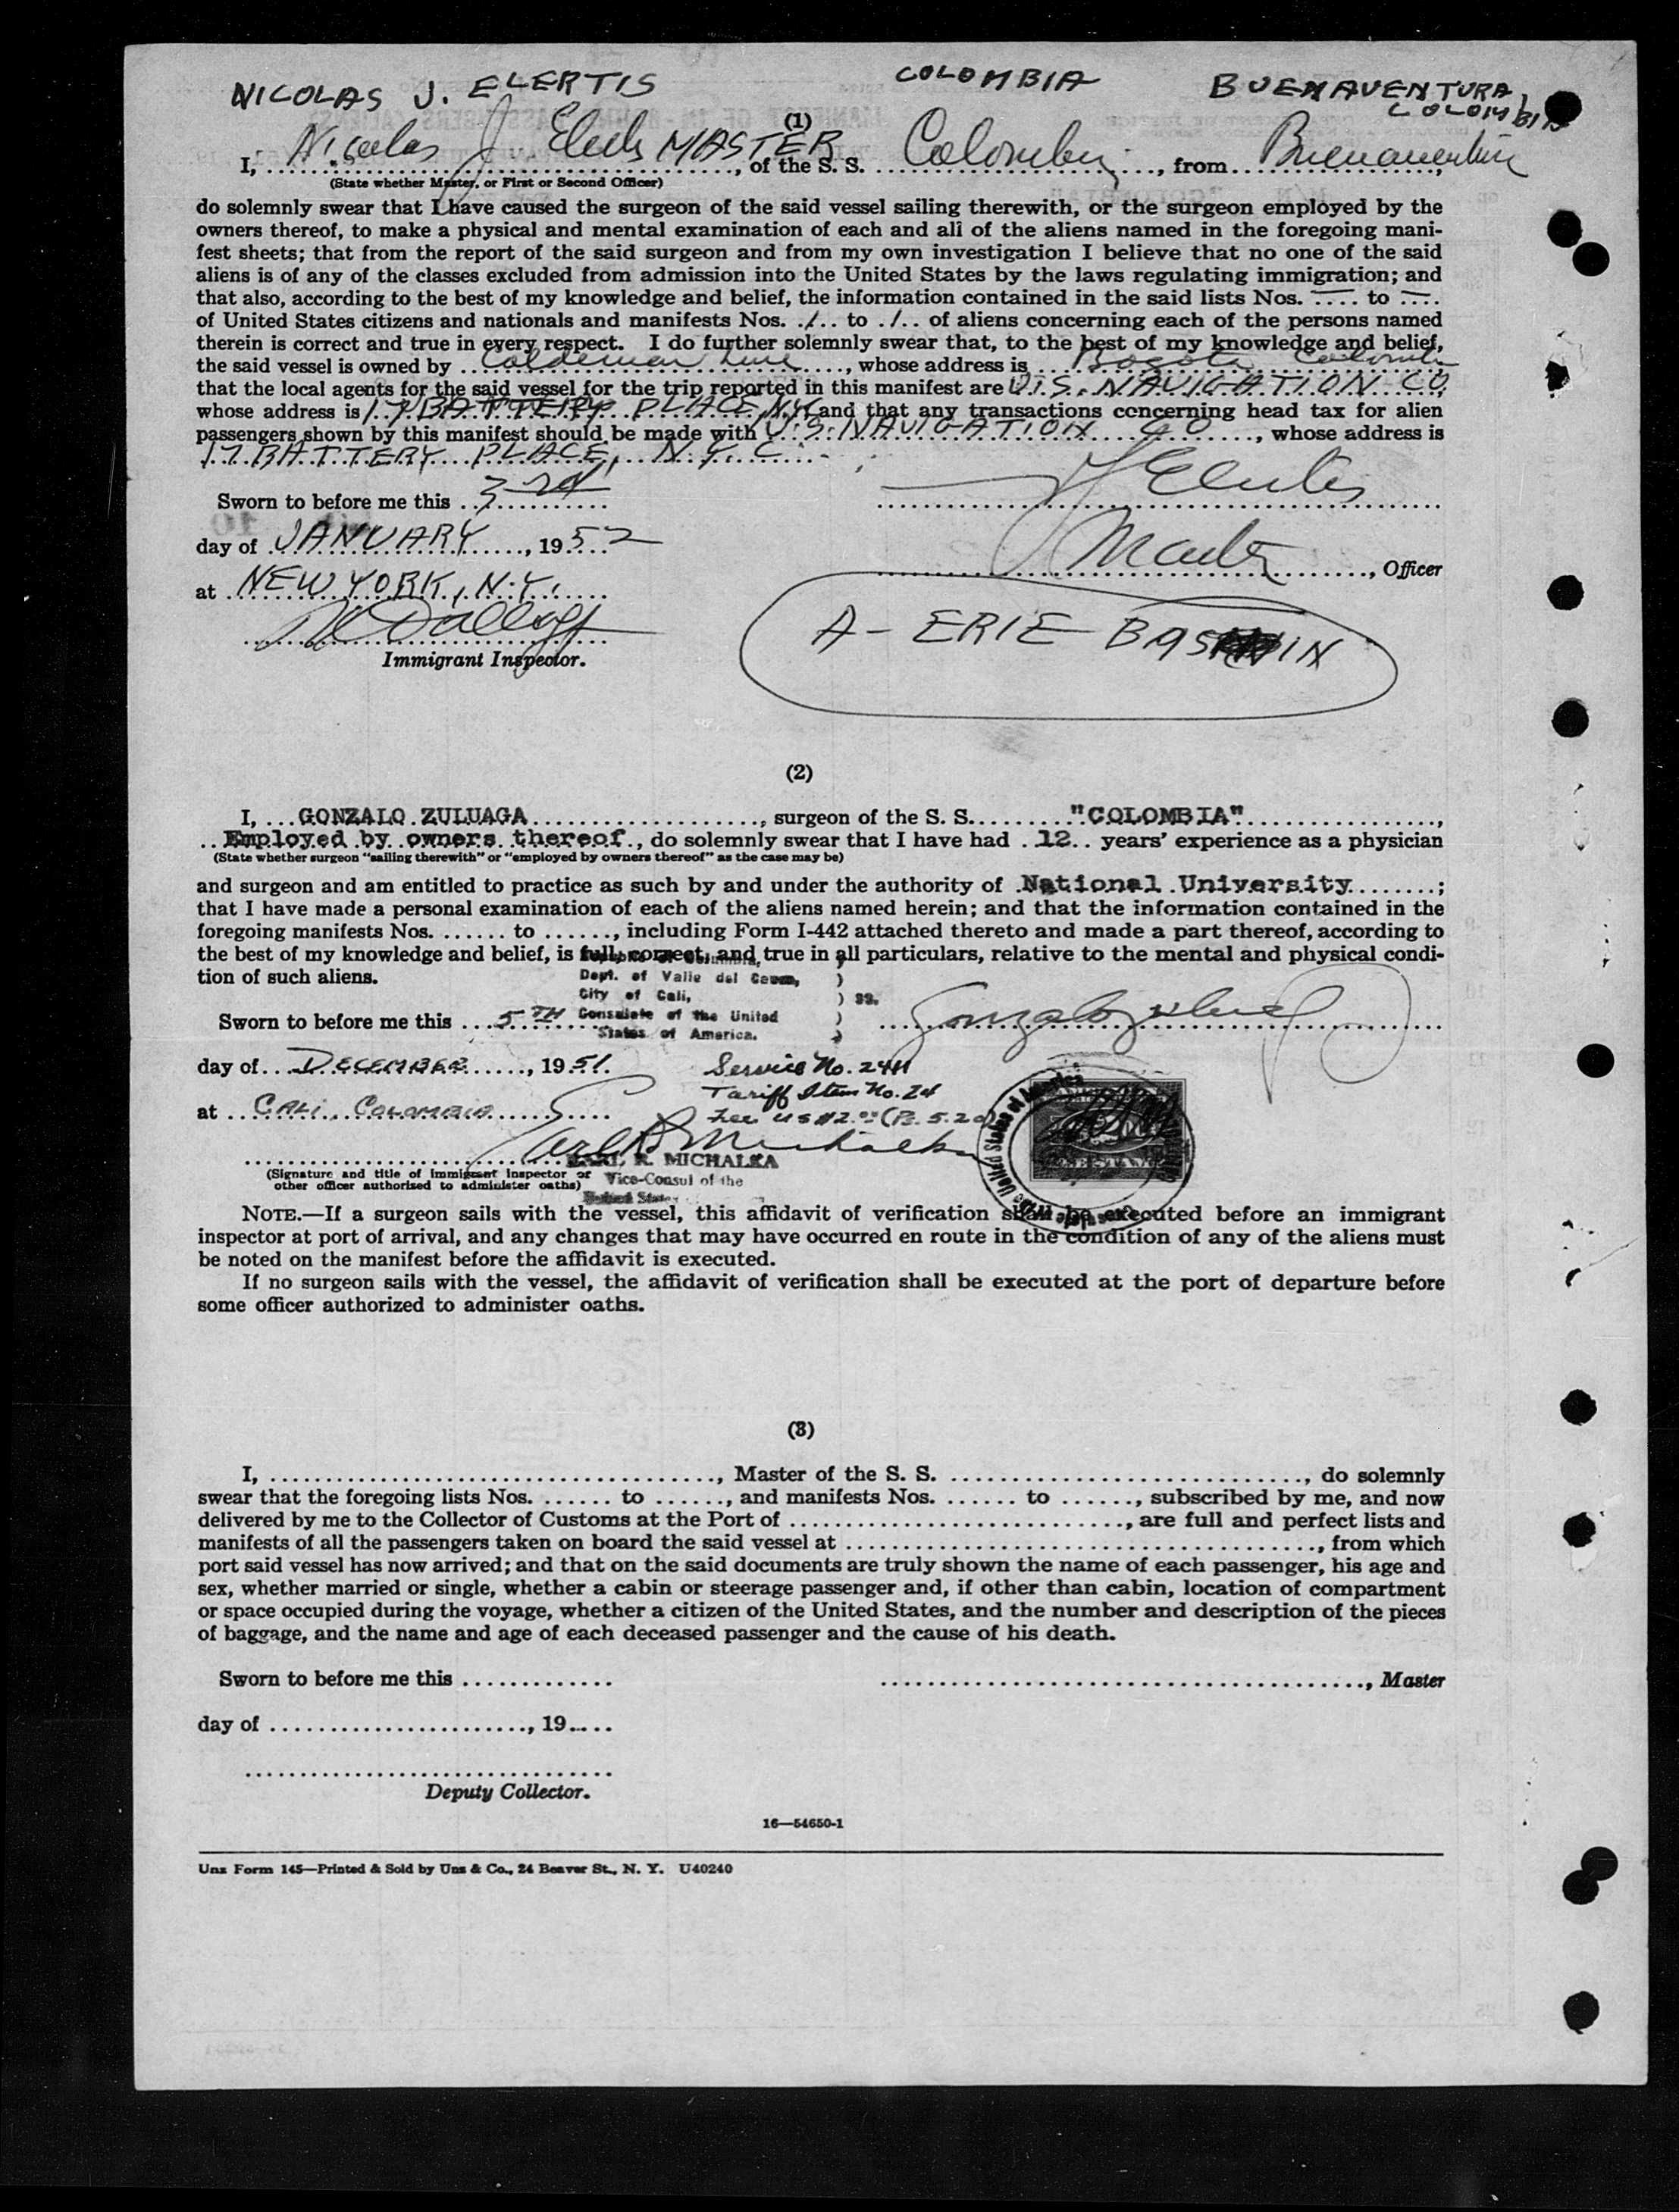 NICOLAS J. ELERTIS COLOMBIA BUENAVENTURA,
COLOMBIA
(1)
I, Nicolas J MASTER, of the S. S. Colombia, from Buenaventura,
(State whether Master, or First or Second Officer)
do solemnly swear that I have caused the surgeon of the said vessel sailing therewith, or the surgeon employed by the
owners thereof, to make a physical and mental examination of each and all of the aliens named in the foregoing mani-
fest sheets; that from the report of the said surgeon and from my own investigation I believe that no one of the said
aliens is of any of the classes excluded from admission into the United States by the laws regulating immigration; and
that also, according to the best of my knowledge and belief, the information contained in the said lists Nos. — to —
of United States citizens and nationals and manifests Nos. 1 to 1 of aliens concerning each of the persons named
therein is correct and true in every respect. I do further solemnly swear that, to the best of my knowledge and belief,
the said vessel is owned by Line, whose address is Bogota Colombia
that the local agents for the said vessel for the trip reported in this manifest are U.S. NAVIGATION CO,
whose address is 17 BATTERY PLACE, N.Y.C and that any transactions concerning head tax for alien
passengers shown by this manifest should be made with U.S. NAVIGATION CO, whose address is
17 BATTERY PLACE, N.Y.C.
Sworn to before me this 3rd
day of JANUARY, 1952
Master, Officer
at NEW YORK, N.Y.
A- ERIE BASIN
Immigrant Inspector.
(2)
I, GONZALO ZULUAGA, surgeon of the S. S. "COLOMBIA",
Employed by owners thereof, do solemnly swear that I have had 12 years' experience as a physician
(State whether surgeon "sailing therewith" or "employed by owners thereof" as the case may be)
and surgeon and am entitled to practice as such by and under the authority of National University;
that I have made a personal examination of each of the aliens named herein; and that the information contained in the
foregoing manifests Nos. ...... to ......, including Form I-442 attached thereto and made a part thereof, according to
the best of my knowledge and belief, is full, correct, and true in all particulars, relative to the mental and physical condi-
tion of such aliens.
Dept. of Valle del Cauca, )
City of Cali, ) SS.
Consulate of the United )
States of America. )
Sworn to before me this 5TH
day of DECEMBER, 1951.
Service No. 2411
Tariff Item No. 24
at CALI, COLOMBIA
Fee US $2.00 (Ps. 5.20)
EARL R. MICHALKA
(Signature and title of immigrant inspector or
other officer authorized to administer oaths)
Vice-Consul of the
United States
NOTE.—If a surgeon sails with the vessel, this affidavit of verification shall be executed before an immigrant
inspector at port of arrival, and any changes that may have occurred en route in the condition of any of the aliens must
be noted on the manifest before the affidavit is executed.
If no surgeon sails with the vessel, the affidavit of verification shall be executed at the port of departure before
some officer authorized to administer oaths.
(3)
I, ......, Master of the S. S. ......, do solemnly
swear that the foregoing lists Nos. ...... to ......, and manifests Nos. ...... to ......, subscribed by me, and now
delivered by me to the Collector of Customs at the Port of ......, are full and perfect lists and
manifests of all the passengers taken on board the said vessel at ......, from which
port said vessel has now arrived; and that on the said documents are truly shown the name of each passenger, his age and
sex, whether married or single, whether a cabin or steerage passenger and, if other than cabin, location of compartment
or space occupied during the voyage, whether a citizen of the United States, and the number and description of the pieces
of baggage, and the name and age of each deceased passenger and the cause of his death.
Sworn to before me this ......
......, Master
day of ......, 19....
Deputy Collector.
16—54650-1
Unz Form 145—Printed & Sold by Unz & Co., 24 Beaver St., N. Y. U40240